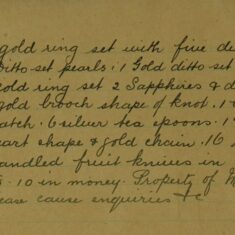 gold ring set with five di
ditto set pearls. 1 Gold ditto set
gold ring set 2 Sapphires & d
gold brooch shape of knot. 1
atch. 6 silver tea spoons. 1
eart shape & gold chain. 16
andled fruit knives in
10 in money. Property of M
ease cause enquiries &c